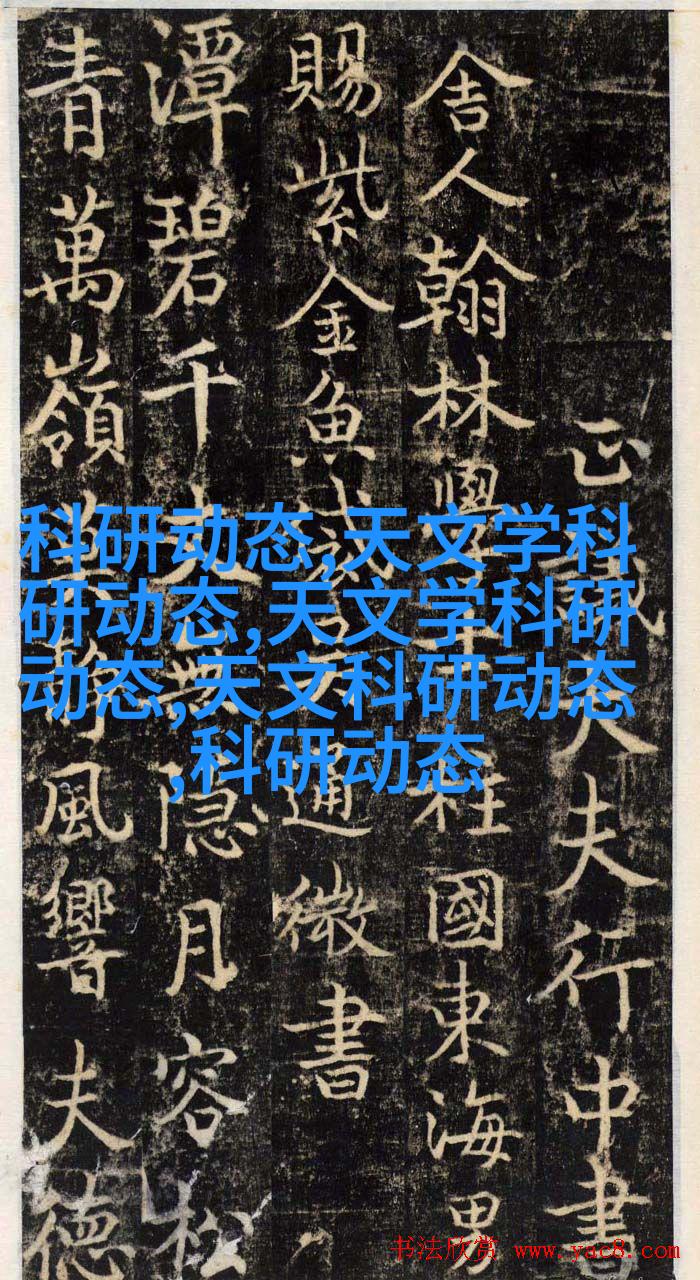 正議大夫行中書
舍人翰林學士柱國東海男
賜紫金魚通微書
潭碧千丈無隱月容松
青萬嶺風響夫德
科研动态,天文学科
研动态,天文学科研
动态,天文科研动态
,科研动态
书法欣赏 www.yac8.com